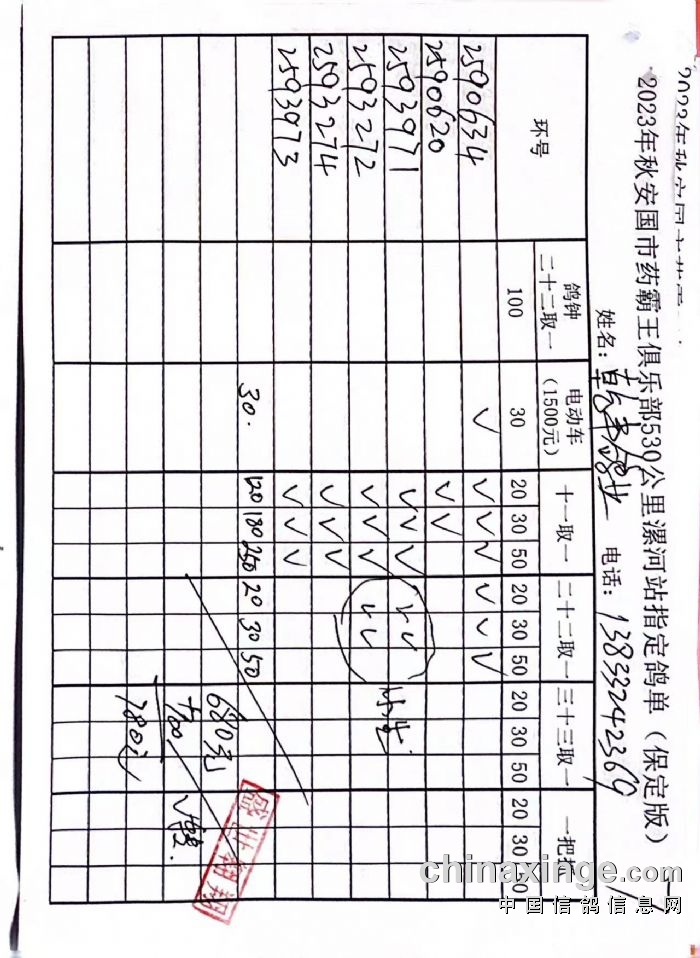 2023年秋安国市药霸王俱乐部530公里漯河站指定鸽单（保定版）
姓名： 电话：13833242369
环号 鸽钟 二十二取一 电动车（1500元） 十一取一 二十二取一 三十三取一 一把抓
100 30 20 30 50 20 30 50 20 30 50 20 30 50
2590634 √ √ √ √ √ √ √
2590620 √ √
2593971 √ √ √ √ √
2593272 √ √ √ √ √
2593274 √ √ √
2593973 √ √ √
30. 120 180 250 20 30 50
680元
+100
780元
chinaxinge.com
中国信鸽信息网